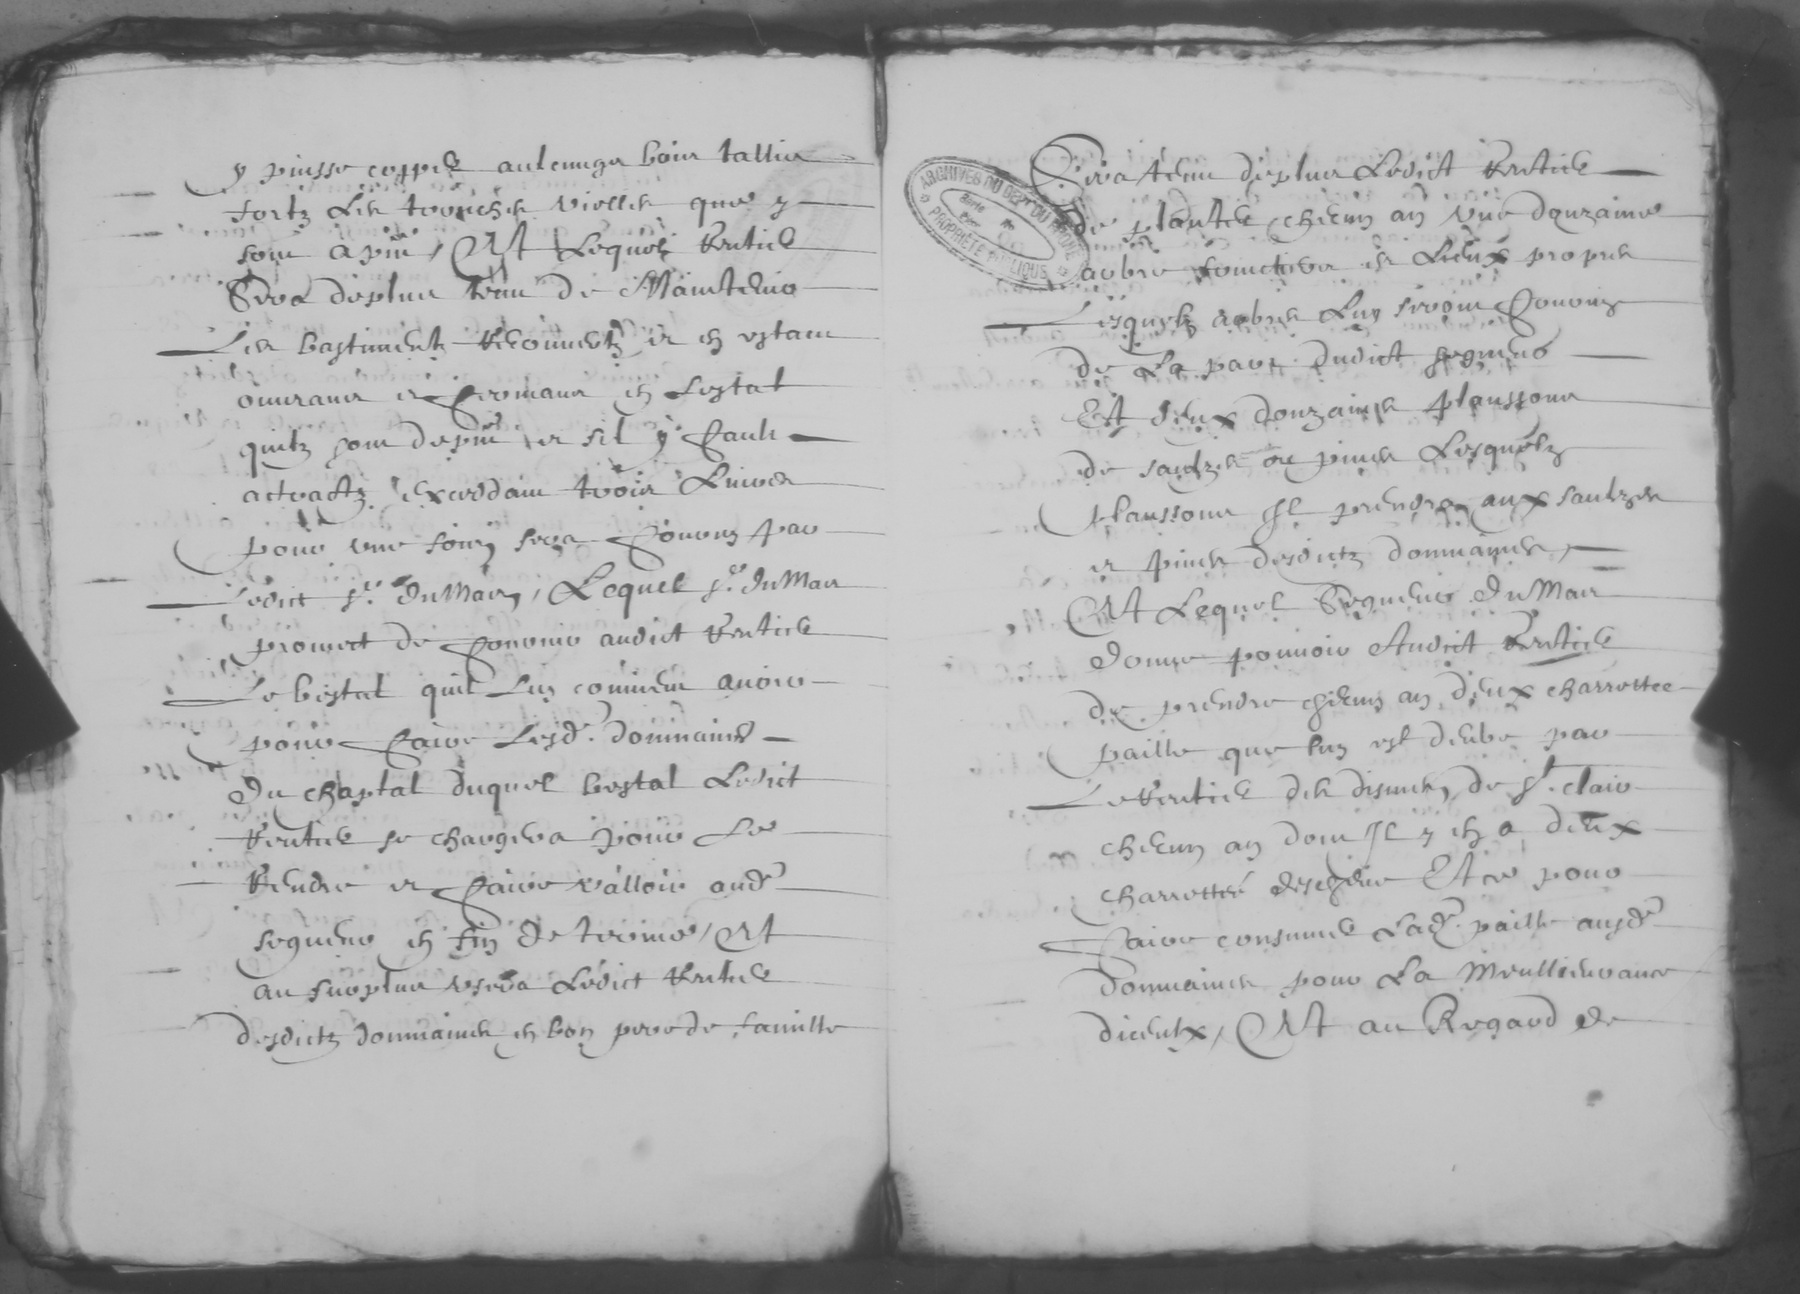 y puisse copper aulcungz bois tallis
fortz les touches vielles que y
sont a pnt, Et Lequel Rentier
sera deplus tenu de Maintenir
Les bastiments Recouvertz et en estant
ouvrans et fermans en Lestat
quilz sont de pnt et sil y fault
actraictz excedant trois Livres
pour une fois sera fourny par
Ledict sr. du Mas, Lequel sr. du Mas
promect de fournir audict Rentier
Le bestal quil Luy convient avoir
pour faire Lesd. dommaines
du chaptal duquel bestal Ledict
Rentier se chargera pour Le
Rendre et faire valloir aud.
seigneur en fin de terme, Et
au surplus usera Ledict Rentier
desdictz dommaines en bon pere de famille
Sera tenu deplus Ledict Rentier
de planter chacun an une douzaine
arbre fruictiers es Lieux propres
Lesquelz arbres Luy seront fournis
de La part dudict seigneur
Et deux douzaines plansons
de saulzes ou pines Lesquelz
plansons Il prendra aux saulzes
et pines desdictz dommaines,
Et Lequel Seigneur du Mas
donne pouvoir Audict Rentier
de prendre chacun an deux charrettee
paille que luy est deube par
Le Rentier des dismes de st. clair
chacun an dont Il y en a deux
charrettee de segle Et ce pour
faire consumer Lad. paille ausd.
dommaines pour La Meullieurance
diceulx, Et au Regard de
ARCHIVES DU DEPT DU RHONE
PROPRIETE PUBLIQUE